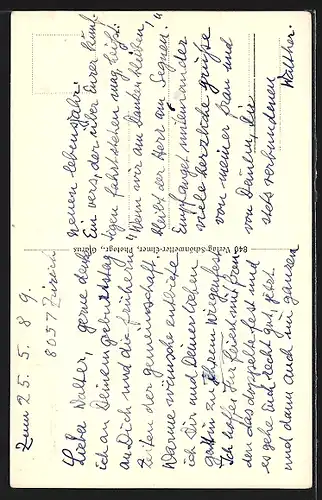 Zum 25. 5. 89.
8057 Zürich
Lieber Walter, gerne denke
ich an Deinem Geburtstag
an Dich und die frühern
Zeiten der Gemeinschaft.
Warme Wünsche entbiete
ich Dir und Deiner lieben
Gattin zu Ihrem Wiegenfest
Ich hoffe Ihr feiert mit Freu
den das doppelte Fest und
es gehe Euch recht gut, jetzt
und dann auch im ganzen
840 Verlag Schönwetter-Elmer, Photogr., Glarus
neuen Lebensjahr.
Ein Vers, der über Eurer künf-
tigen Fahrt stehen mag heißt:
"Wenn wir am Danken bleiben,
bleibt der Herr am Segnen."
Empfanget miteinander
viele herzliche Grüße
von meiner Frau und
von Deinem,
stets verbundenen
Walther.